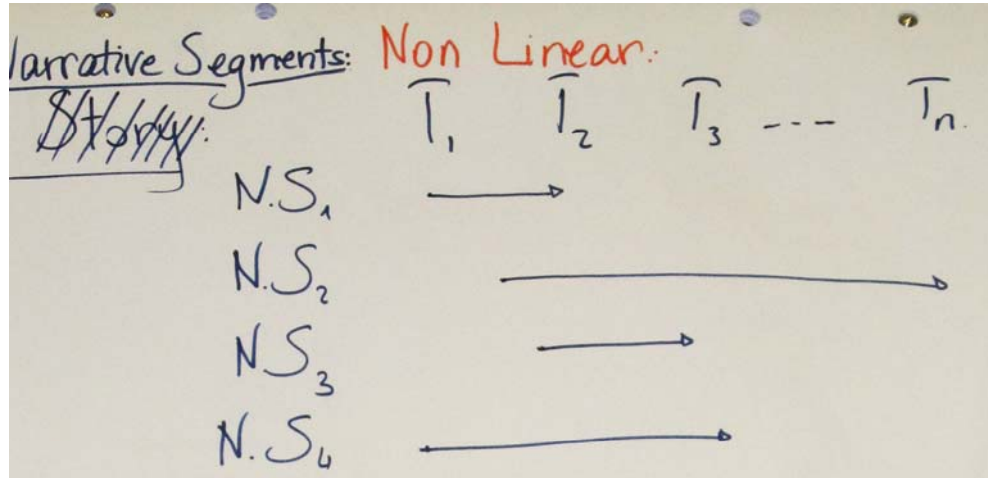 Narrative Segments: Non Linear.
Story:
T1 T2 T3 ---- Tn.
N.S1
N.S2
N.S3
N.S4